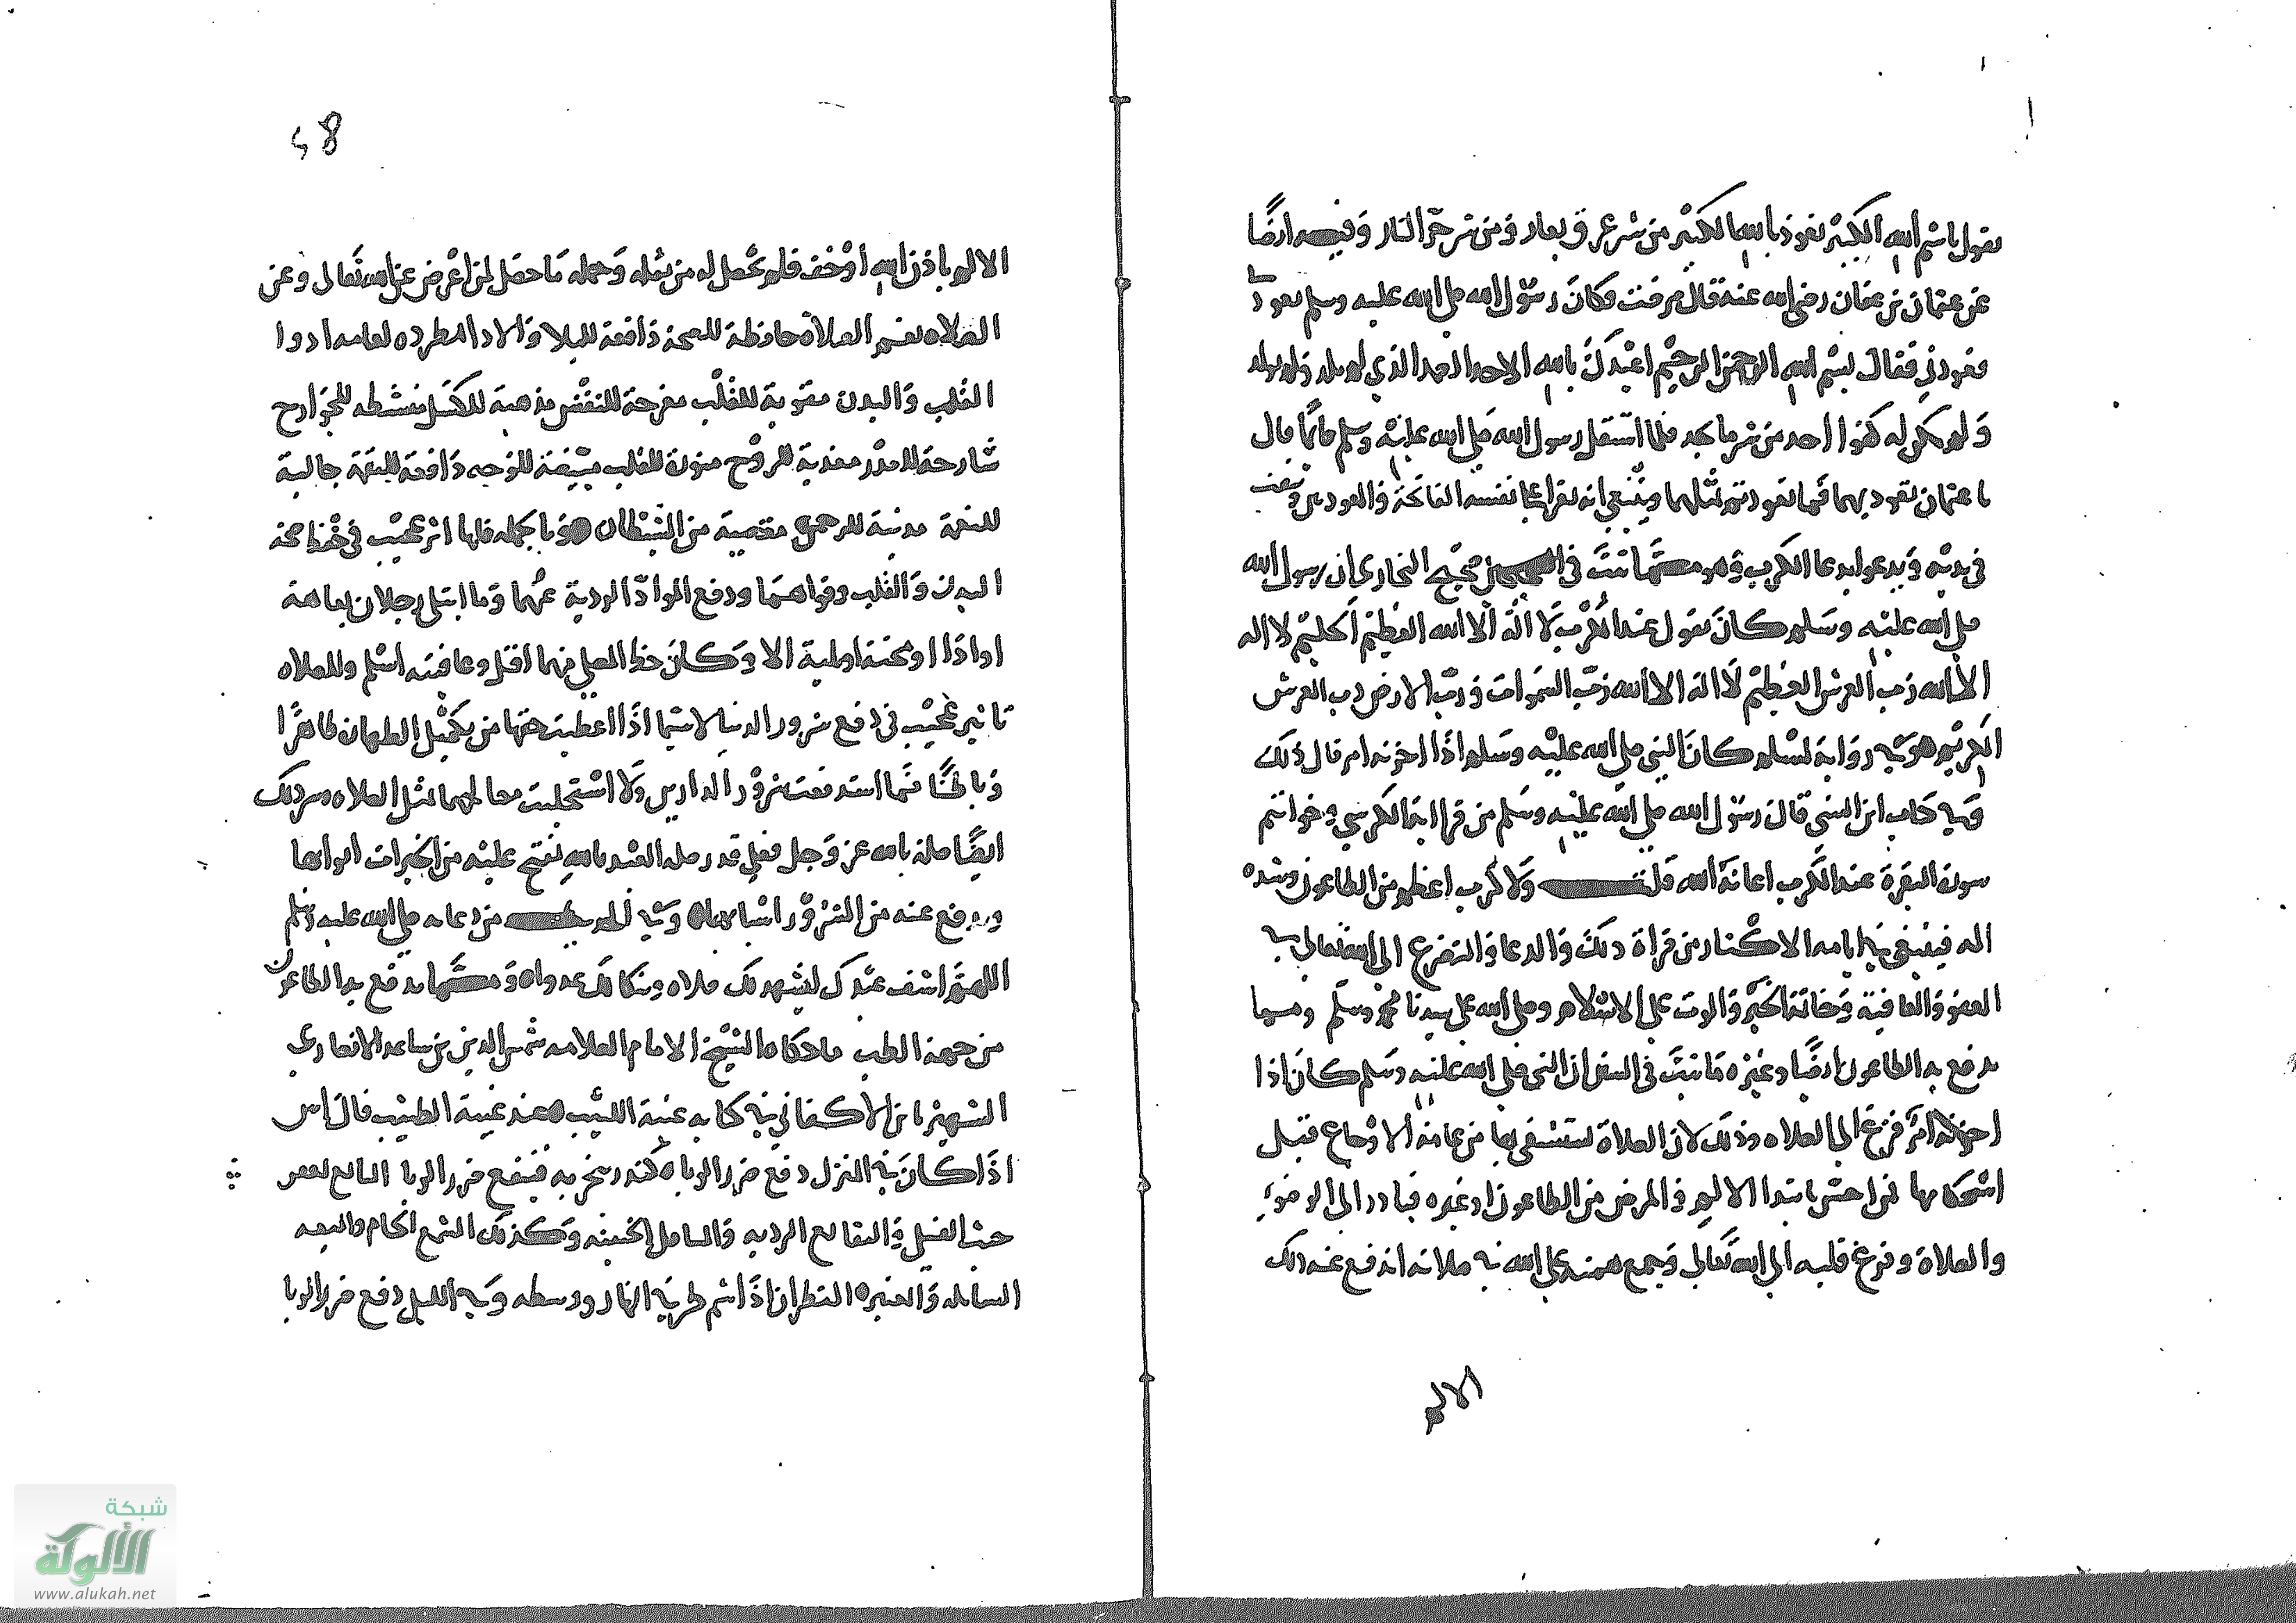 يقول باسم الله الكبير نعوذ بالله الكبير من شر عرق نعار ومن شر حر النار وفيه ايضا
عن عثمان بن عفان رضي الله عنه قال مرضت وكان رسول الله صلى الله عليه وسلم يعودـ
فعوذني فقال بسم الله الرحمن الرحيم اعيذك بالله الاحد الصمد الذي لم يلد ولم يولد
ولم يكن له كفوا احد من شر ما تجد فلما استقل رسول الله صلى الله عليه وسلم قائما قال
يا عثمان تعوذ بهما فما تعوذتم بمثلهما وينبغي ان يقرا على نفسه الفاتحة والمعوذتين وينفث
في يديه ويدعو بدعا الكرب وهو مما ثبت في صحيح البخاري ان رسول الله
صلى الله عليه وسلم كان يقول عند الكرب لا اله الا الله العظيم الحليم لا اله
الا الله رب العرش العظيم لا اله الا الله رب السموات ورب الارض رب العرش
الكريم وفي رواية لمسلم كان النبي صلى الله عليه وسلم اذا حزبه امر قال ذلك
وفي كتاب ابن السني قال رسول الله صلى الله عليه وسلم من قرا اية الكرسي وخواتيم
سورة البقرة عند الكرب اعانه الله قلت ولا كرب اعظم من الطاعون وشدة
المه فينبغي في ايامه الاكثار من قراة ذلك والدعا والتضرع الى الله تعالى في
العفو والعافية وخاتمة الخير والموت على الاسلام وصلى الله على سيدنا محمد وسلم ومما
يدفع به الطاعون ايضا وغيره ما ثبت في السنن ان النبي صلى الله عليه وسلم كان اذا
احزنه امر فزع الى الصلاه وذلك لان الصلاة يستشفى بها من عامة الاوجاع قبل
استحكامها فمن احس بابتدا الالم والمرض من الطاعون او غيره فبادر الى الوضوء
والصلاة وفرغ قلبه الى الله تعالى وجمع همته على الله في صلاته اندفع عنه ذلك
الالم
٢٨
الالم باذن الله او خف فلم يحصل له من ثقله وحمله ما حصل لمن اعرض عن الله تعالى وعن
الصلاه نفسها الصلاة حافظة للصحة دافعة للبلا والاذا مطرده لعامة ادوا
القلب والبدن مقوية للقلب مفرحة للنفس مذهبة للكسل منشطه للجوارح
شارحة للصدر مغذية للروح منورة للقلب مبيضة للوجه دافعة للنقمة جالبة
للنعمة مدنية للرحمن مقصية من الشيطان وبالجملة فلها اثر عجيب في حفظ صحة
البدن والقلب وقواهما ودفع المواد الردية عنهما وما ابتلي رجلان بعاهة
او اذا او محنة او بلية الا وكان حظ المصلي منهما اقل وعافيته اسلم وللصلاه
تاثير عجيب في دفع شرور الدنيا لا سيما اذا اعطيت حقها من تكميل الطهارة ظاهرا
وباطنا فما استدفعت شرور الدارين ولا استجلبت مصالحهما بمثل الصلاه وسر ذلك
ايضا صلة بالله عز وجل فعلى قدر صلة العبد بالله تفتح عليه من الخيرات ابوابها
ويدفع عنه من الشرور اسبابها وفي من دعايه صلى الله عليه وسلم
اللهم اشف عبدك ليشهد لك صلاة وينكا لك عدوا ومما يدفع به الطاعون
من جهة الطب ما حكاه الشيخ الامام العلامه شمس الدين بن ساعد الانصاري
الشهير بابن الاكفاني في كتابه غنية اللبيب عند غيبة الطبيب قال اس
اذا كان في المنزل دفع ضرر الوبا كندر يبخر به فينفع ضرر الوبا التابع لعفن
جثث القتلى والنقايع الرديه وكذلك الشمع الخام والميعه
السايله والعنبر القطران اذا شم طرفي النهار ووسطه وفي الليل دفع ضرر الوبا
شبكة
الألوكة
www.alukah.net